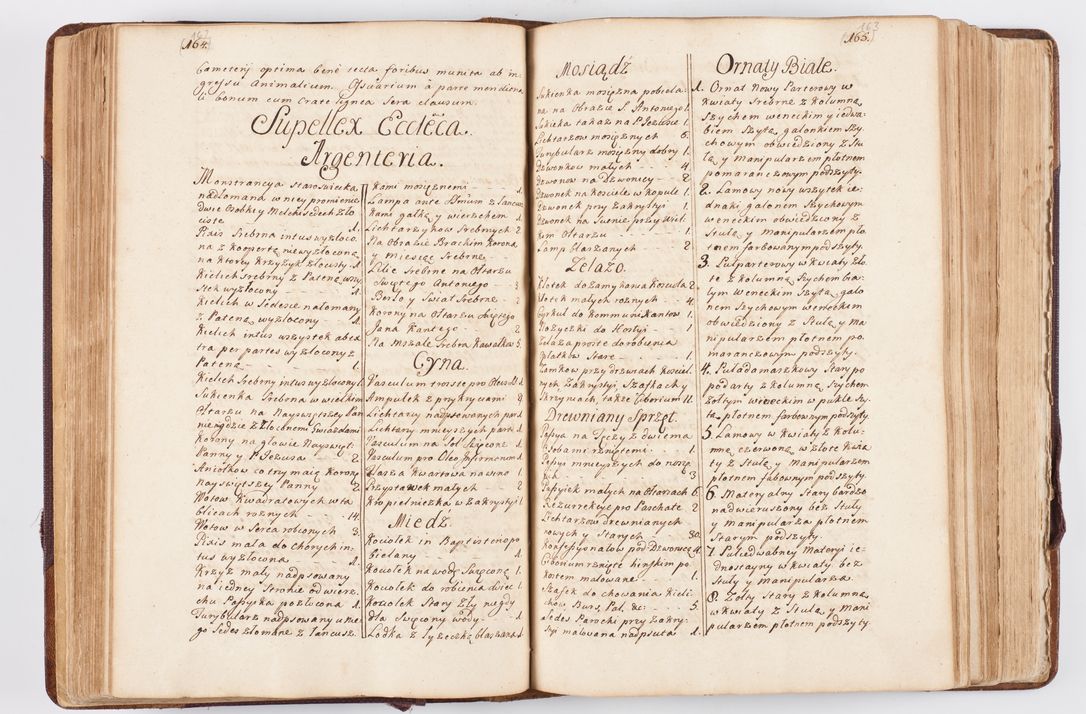 164.
Cameterij optima bene tecta foribus munita ab in
gressu Animalium. Ossuarium a parte meridiona
li bonum cum Crate lignea Sera clausum.
Supellex Ecclca.
Argenteria.
Monstrancya staroswiecka
nadłomana w niey promienie
dwie Osobki y Melchisedech zło
ciste
Pixis Srebrna intus wyzłoco
na z kopertą niewyzłoconą
na ktorey Krzyżyk złocisty 1.
Kielich Srebrny z Pateną wszy
stek wyzłocony 1.
Kielich w Sedesie nałomany
z Pateną wyzłocony 1.
Kielich intus wszystek ab ex
tra per partes wyzłocony z
Pateną 1.
Kielich Srebrny intus wyzłocony 1.
Sukienka Srebrna w wielkim
Ołtarzu na Nayswiętszey Pan
nie z złoconemi Gwiazdami
Korony na głowie Nayswięt:
Panny y P. Jezusa 2.
Aniołkow co trzymaią Koronę
Nayswiętszey Panny 2.
Wotow Kwadratowych w ta
blicach roznych 14.
Wotow w Serca robionych 3.
Pixis mała do chorych in-
tus wyzłocona 1.
Krzyż mały nadpsowany
na iedney stronie od wierz-
chu Passyika pozłocona 1.
Turybularz nadpsowany u ne-
go Sedes złomane z łancusz-
kami mosięznemi 1.
Lampa ante Venerabile z łancusz
kami gałką y wierzchem 1.
Lichtarzykow Srebrnych 2
Na Obrazie Brackim Korona
y miesiąc Srebrne
Lilie Srebrne na Ołtarzu
Swiętego Antoniego 3
Berło y Swiat Srebrne 2
Korony na Ołtarzu Swiętego
Jana Kantego 2.
Na Mszale Srebra Kawałkow 5.
Cyna.
Vasculum troiste pro Oleis SS. 1.
Ampułek z przykrywami
Lichtarzy nadpsowanych par
Lichtarzy mnieyszych para 1
Vasculum na Sol Swięcone 1
Vasculum pro Oleo Infirmorum 1.
Flasza Kwartowa na wino 1
Przystawek małych 2
Kropielniczka w Zakrystyi 1
Miedź.
Kociołek in Baptisterio po
bielany 1.
Kociołek na wodę Swięconą 1.
Kociołek do robienia Swiec 1
Kociołek stary zły nigdy
dla Swięconey wody 1
Łodka z łyzeczką blaszana 1
165.
163
Mosiądź
Sukienka mosięzna pobiela
na na Obrazie S. Antoniego 1.
Sukieka takaz na P. Jezusie 1.
Lichtarzow mosięznych 6.
Turybularz mosięzny dobry 1.
Dzwonkow małych 4
Dzwonow na Dzwonicy 2
Dzwonek na Kosciele w Kopule 1.
Dzwonek przy Zakrystyi 1.
Dzwonek na Sienie przy Wiel:
kim Ołtarzu 1.
Lamp blaszanych 2
Zelazo.
Kłotek do Zamykania Koscioła 2
Kłotek małych roznych 4.
Cyrkul do Kommunikantow 1.
Nozyczki do Hostyi 1
Zelaza proste do robienia
Opłatkow stare 1.
Zamkow przy drzwiach Koscieł
nych Zakrystyi, Szafkach y
Skrzyniach, także Ciborium 11.
Drewniany Sprzęt.
Passya na Tęczy z dwiema
Osobami rżniętemi 1.
Passya mnieyszych do nosze
nia 3
Passyjek małych na Ołtarzach 6.
Rezurrekcye pro Paschate 2
Lichtarzow drewnianych
nowych y starych 30.
Konfessyonałow pod Dzwonicą 4.
Ciborium rżnięte
kostem malowane 1.
Szafek do chowania Kieli
chow, Burs, Pal. &c: 5.
Sedes Parochi przy Zakry-
styi malowana nadpsuta 1.
Ornaty Białe.
1. Ornat Nowy Parterowy w
Kwiaty Srebrne z Kolumną
Szychem weneckim y iedwa-
biem szytą, galonkiem Szy-
chowym obwiedziony z Stu
łą y Manipularzem płotnem
pomaranczowym podszyty.
2. Lamowy nowy wszytek ie-
dnaki, galonem Szychowym
weneckim obwiedziony z
Stułą y Manipularzem pło
tnem farbowanym podszyty.
3. Parterowy w Kwiaty zło
te z Kolumną Szychem bia-
łym weneckim szytą, galo
nem Szychowym weneckim
obwiedziony z Stułą y Ma
nipularzem płotnem po-
maranczowym podszyty.
4. Puładamaszkowy stary po
podarty z Kolumną Szychem
żołtym weneckim w pukle szy-
tą płotnem farbownym podszyty.
5. Lamowy w Kwiaty z Kolu-
mną czerwoną w złote Kwia
ty z Stułą y Manipularzem
płotnem fabownym podszyty.
6. Materyalny stary bardzo
nadwieruszony bez Stuły
y Manipularza płotnem
starym podszyty.
7. Pułiedwabney Materyi ie-
dnostayny w Kwiaty, bez
Stuły y Manipularza.
8. Zołty stary z Kolumną
w Kwiaty z Stułą y Mani
pularzem płotnem podszyty.